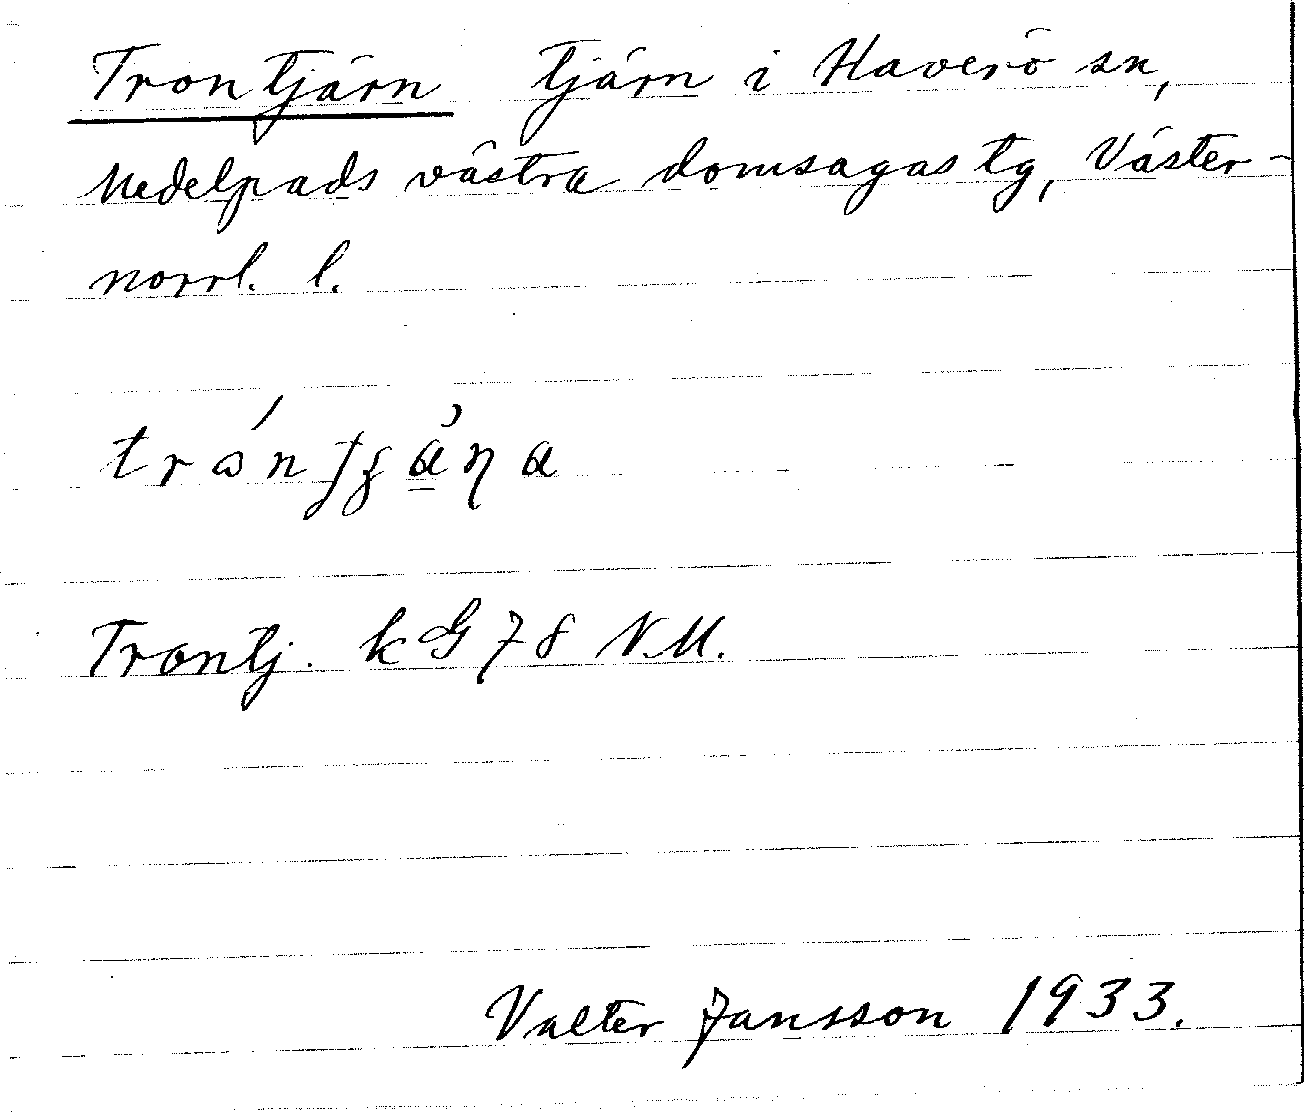 Trontjärn tjärn i Haverö sn,
Medelpads västra domsagas tg, Väster-
norrl. l.
Trontj. kG 78 N.M.
Valter Jansson 1933.